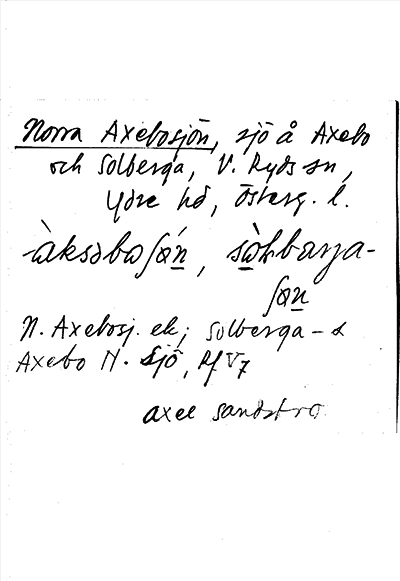 Norra Axebosjön, sjö å Axebo
och Solberga, V. Ryds sn,
Ydre hd, Österg. l.
-àksəbωʃøń̲, sò̲łbærja-
ʃøn̲
N. Axebosj. ek; Solberga- &
Axebo N. Sjö, Rf V7
Axel Sandstro